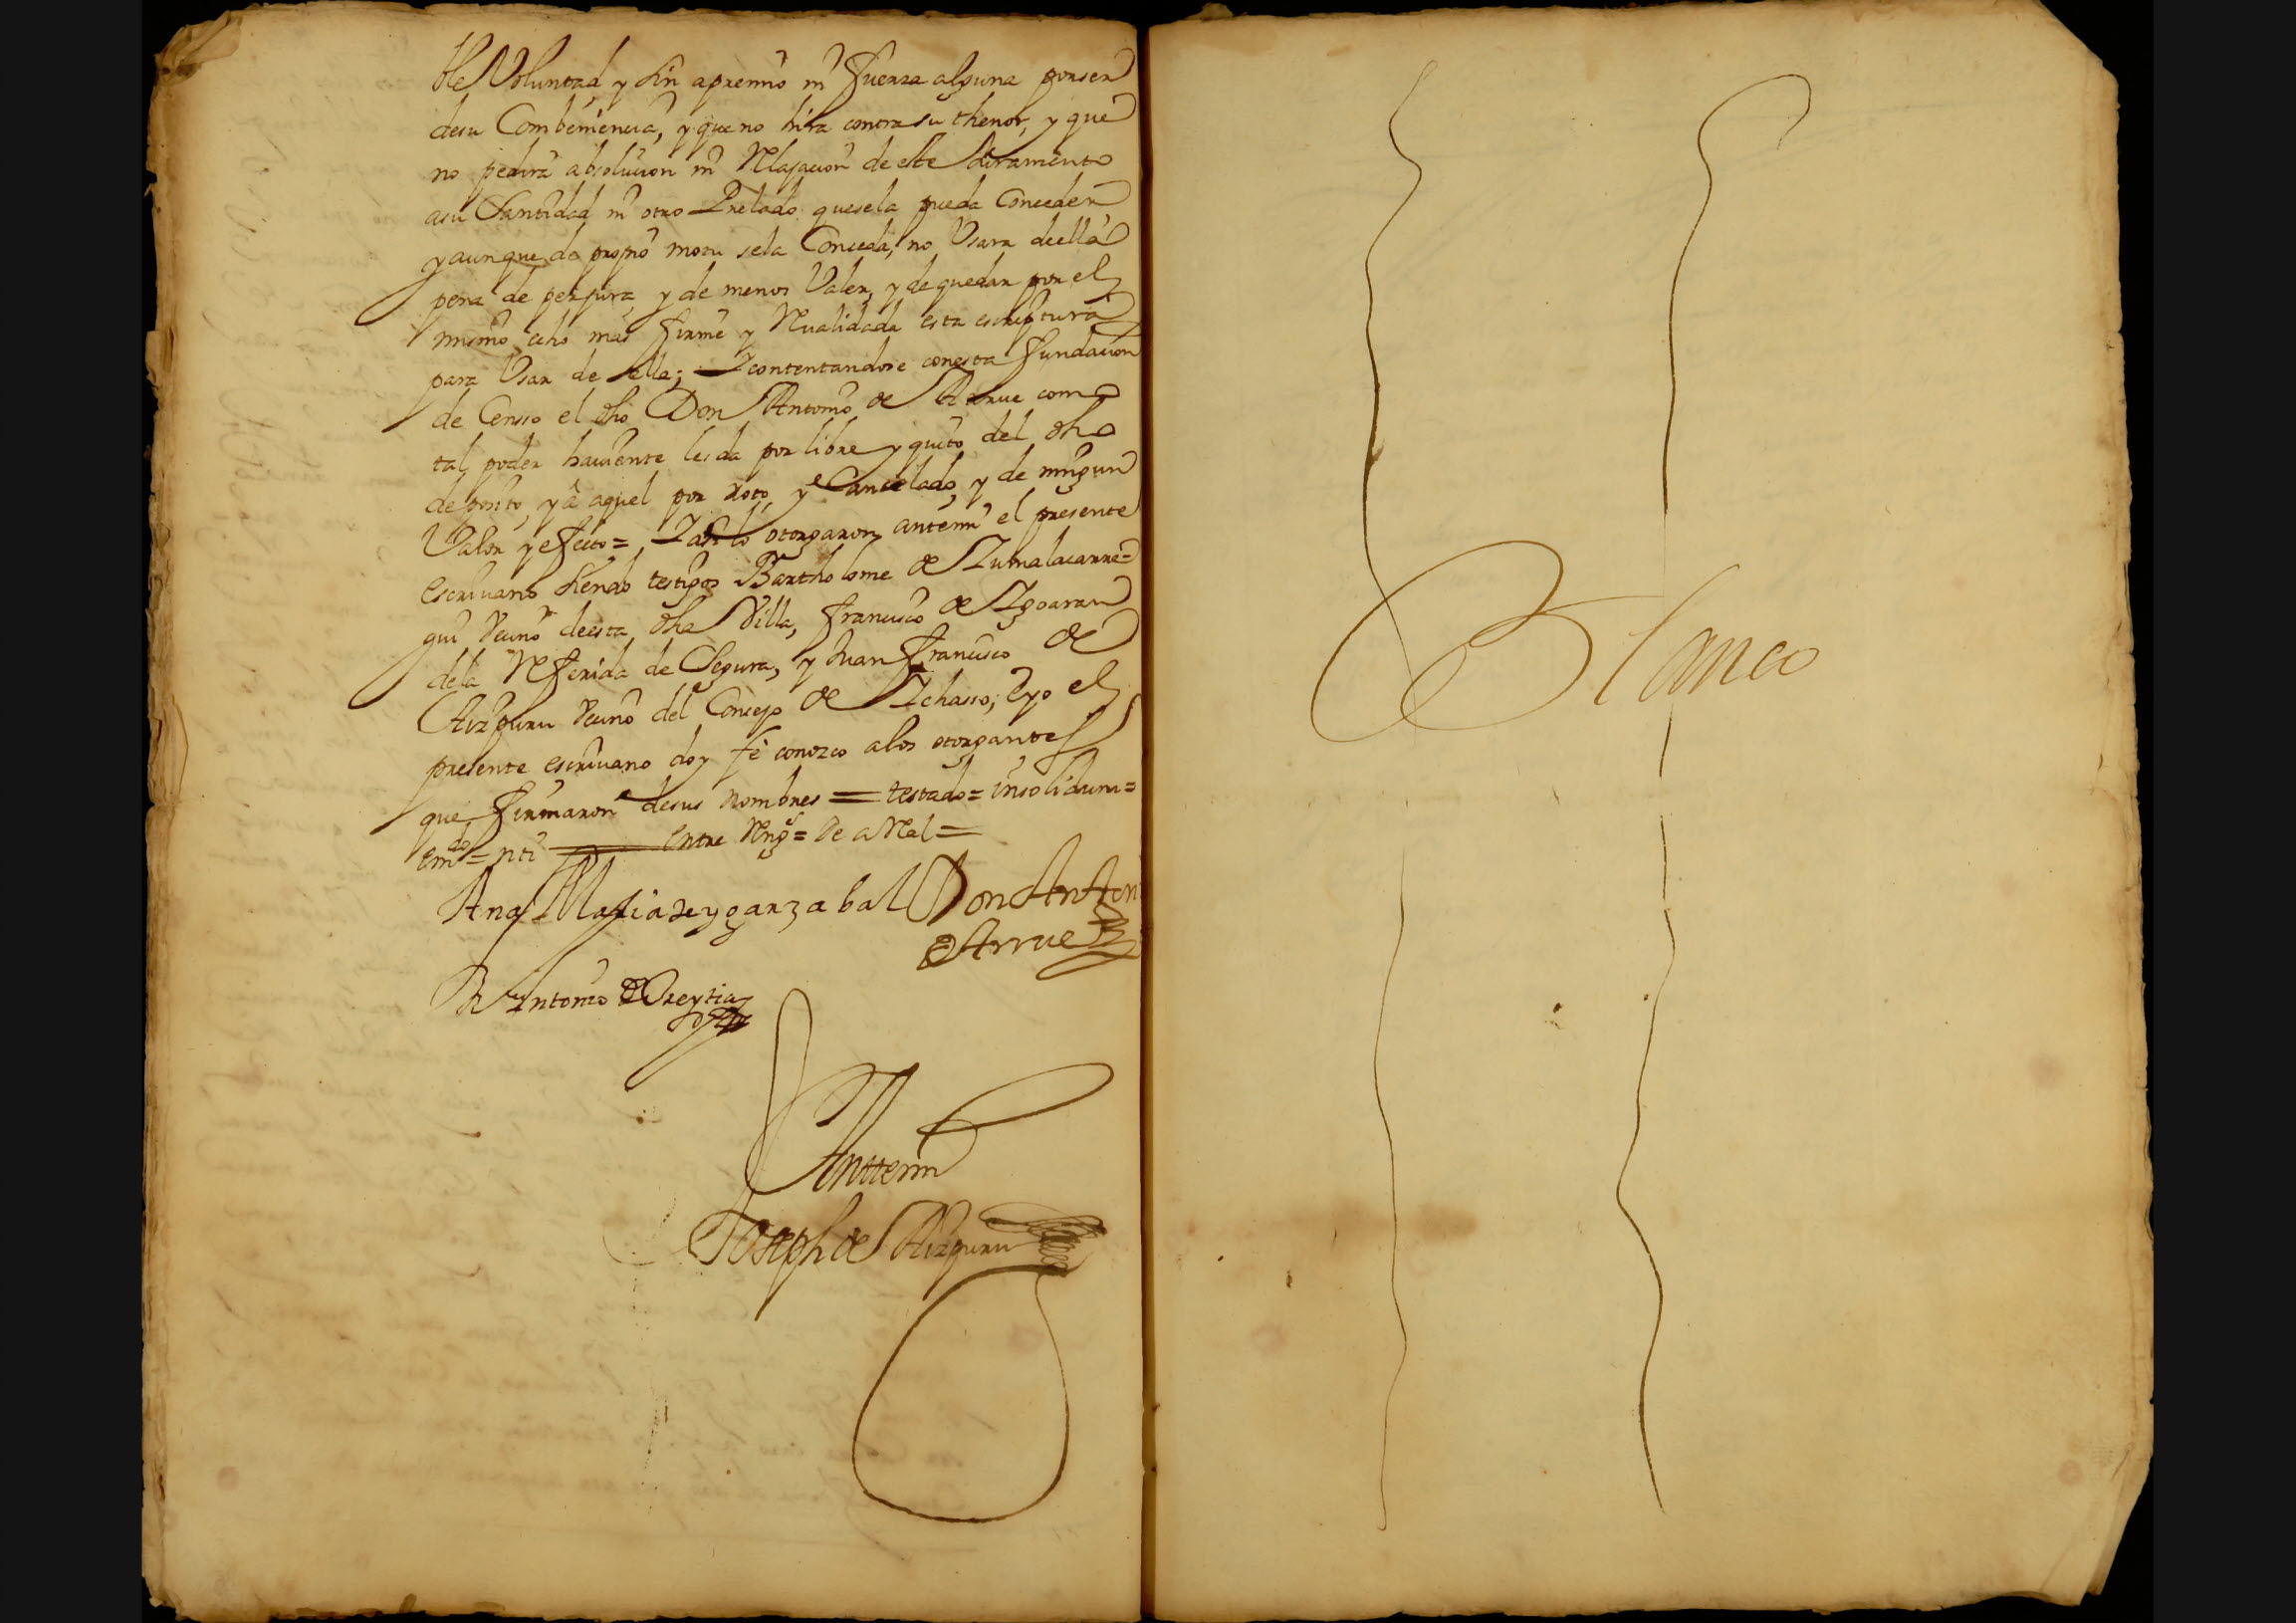 ble Voluntad y sin apremio ni fuerza alguna por ser
de su Combeniencia, y que no hira contra su thenor, y que
no pedira absolucion ni Relajacion de este Juramento
a su Santidad ni otro Prelado que se la pueda Conceder
y aunque de propio motu se la Conceda, no Usara de ella
pena de perjura y de menos Valer, y de quedar por el
mismo echo mas firme y Rualidada esta escriptura
para Usar de ella; Y contentandose con esta fundacion
de Censso el dho Don Antonio de Arrue como
tal poder haviente les da por libre y quito del dho
deposito, y â aquel por roto, y Cancelado, y de ningun
Valor y efecto = Y assi lo otorgaron ante mi el presente
escrivano siendo testigos Bartholome de Zumalacarre=
gui vecino de esta dha Villa, francisco de Ygoaran
de la Referida de Segura, y Juan francisco de
Aizpuru vecino del Concejo de Ychasso; E yo el
presente escrivano doy fe conozco a los otorgantes
que firmaron de sus nombres = testado = insolidum =
emdo = nti = entre Rengs = De a Real =
Ana Maria de yganzabal Don Anton
de Arrue
Antonio de Oreytia
Antte mi
Joseph de Aizpuru
Blanco